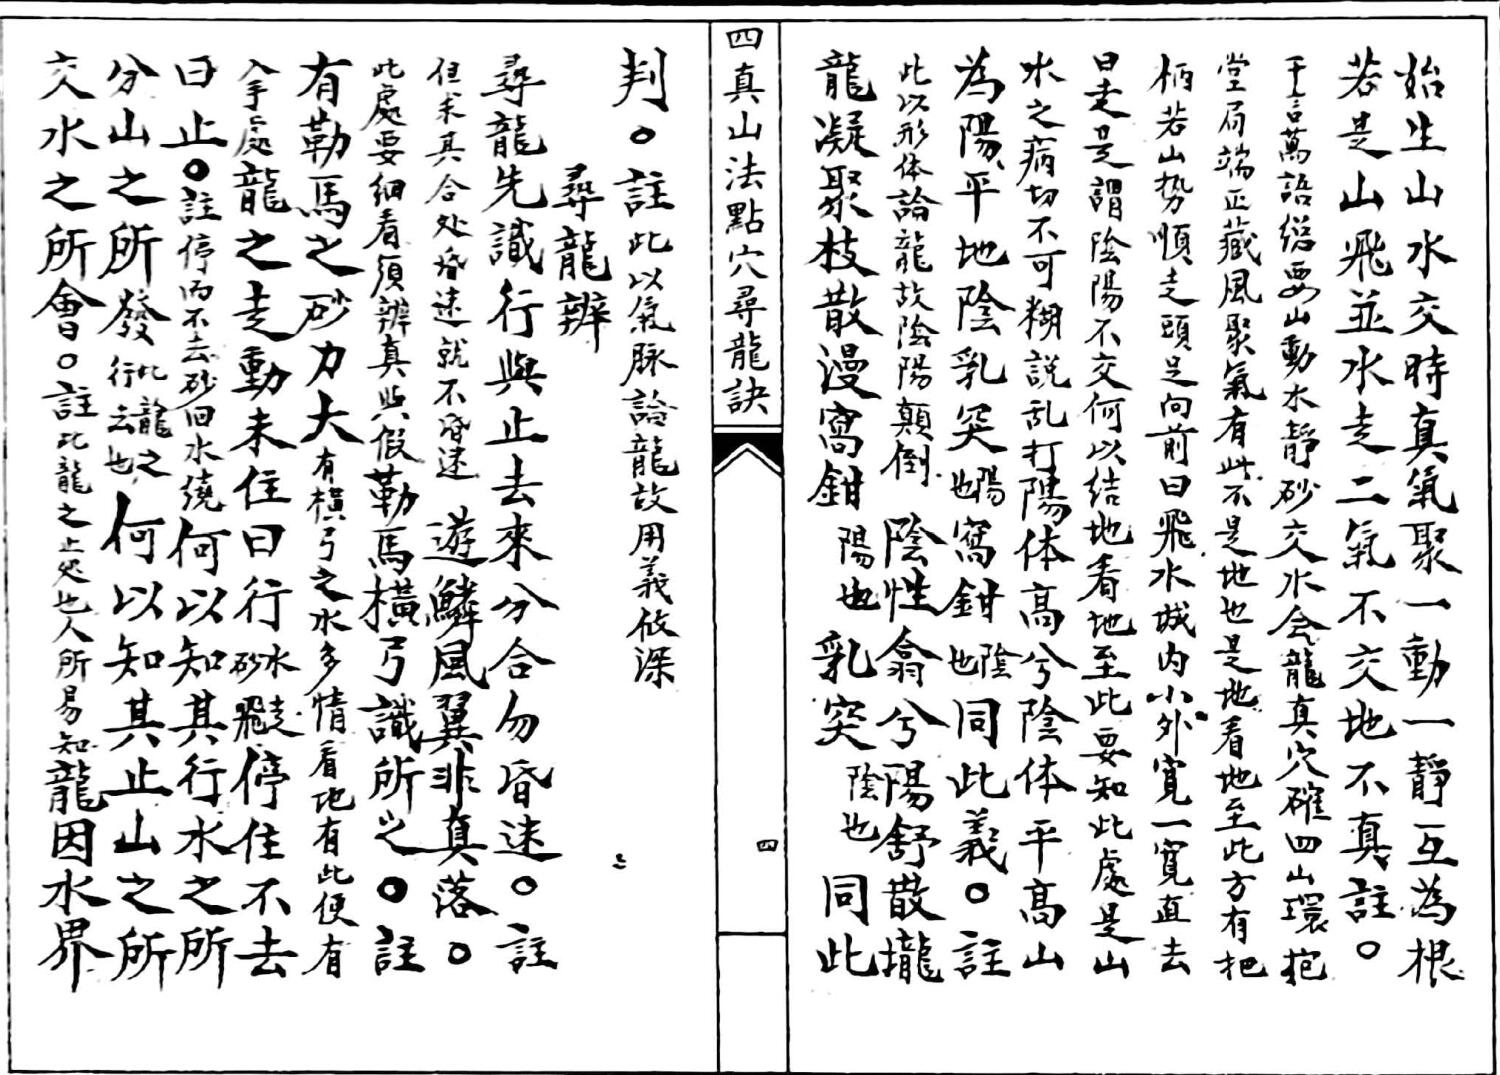 始生山水交時真氣聚一動一靜互為根
若是山飛並水走二氣不交地不真註。
千言萬語總要山動水靜砂交水会龍真穴確四山環抱
堂局端正藏風聚氣有此不是地也是地看地至此方有把
柄若山势順走頭足向前曰飛水城内小外寬一寬直去
曰走是謂陰陽不交何以结地看地至此要知此處是山
水之病切不可糊説乱打陽体高兮陰体平高山
為陽平地陰乳突也陽窩鉗也陰同此義。註
此以形体論龍故陰陽顛倒 陰性翕兮陽舒散攏
龍凝聚枝散漫窩鉗陽也乳突陰也同此
四真山法點穴尋龍訣
四
判。註此以氣脉論龍故用義攸深
尋龍辨
尋龍先識行與止去來分合勿昏迷。註
但求其合处昏迷就不昏迷 遊鱗風翼非真落。
此處要細看須辨真與假勒馬横弓識所止。註
有勒馬之砂力大有横弓之水多情看地有此便有
入手處龍之走動未住曰行水走砂飛停住不去
曰止。註停而不去砂回水繞何以知其行水之所
分山之所發此龍之行去也何以知其止山之所
交水之所會。註此龍之止处也人所易知龍因水界